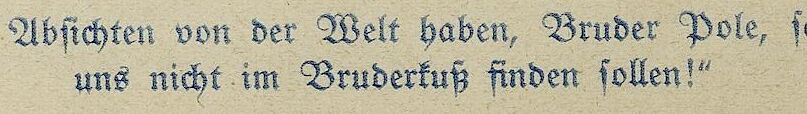 Absichten von der Welt haben, Bruder Pole,
uns nicht im Bruderkuß finden sollen!“